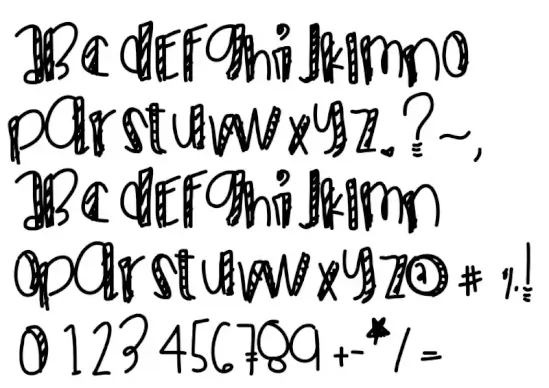 aBCdEFghijklmno
pqrstuvwxyz.?~,
aBCdEFghijklmn
opqrstuvwxyz@#%.!
0123456789+-*/=